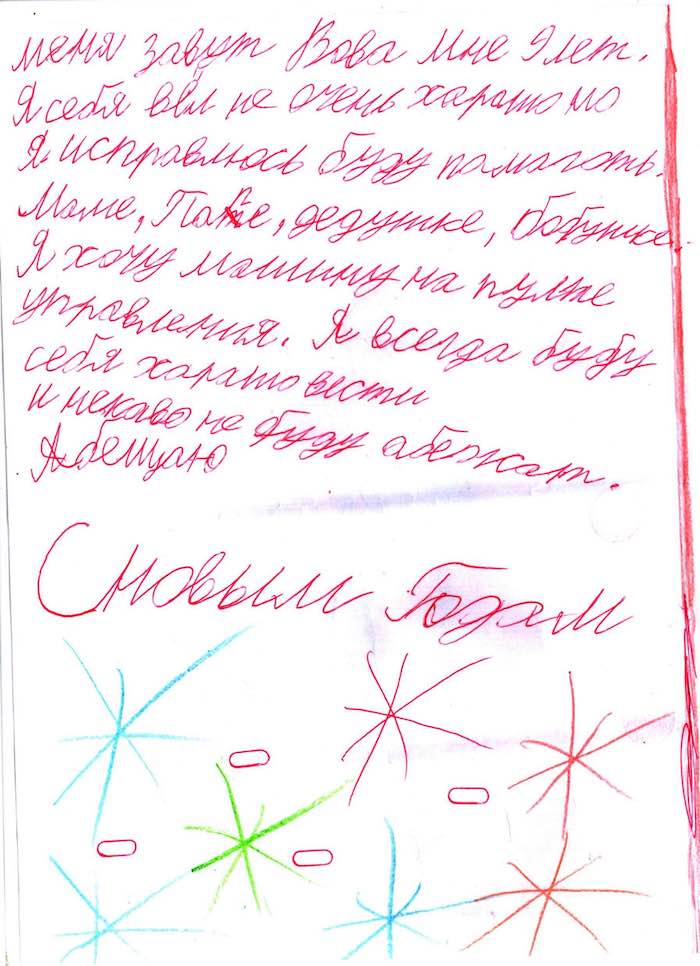 меня завут Вова мне 9 лет.
Я себя вёл не очень харашо но
Я исправлюсь буду памагать.
Маме, Папе, дедушке, бабушке.
Я хочу машину на пулте
управления. Я всегда буду
себя харашо вести
и некаво не буду абежат.
Я абещаю
С новым Годам